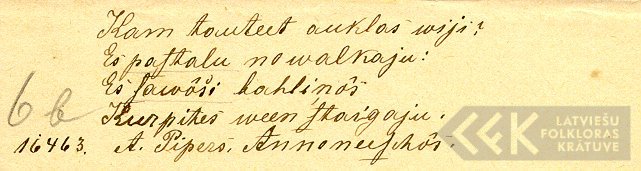 Kam tauteet auklas wiji?
Es paſtalu nowalkaju:
Es ſawôſi kahſinôs
Kurpites ween ſtaigaju.
6 b
16463. A. Pipers. Annoneeſchôs.
LATVIEŠU
FOLKLORAS
KRĀTUVE